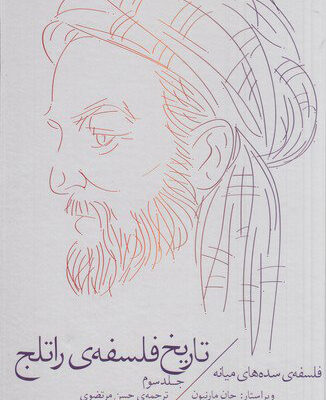 تاریخ فلسفه‌ی راتلج
فلسفه‌ی سده‌های میانه / جلد سوم
ویراستار: جان مارنبون / ترجمه‌ی حسن مرتضوی